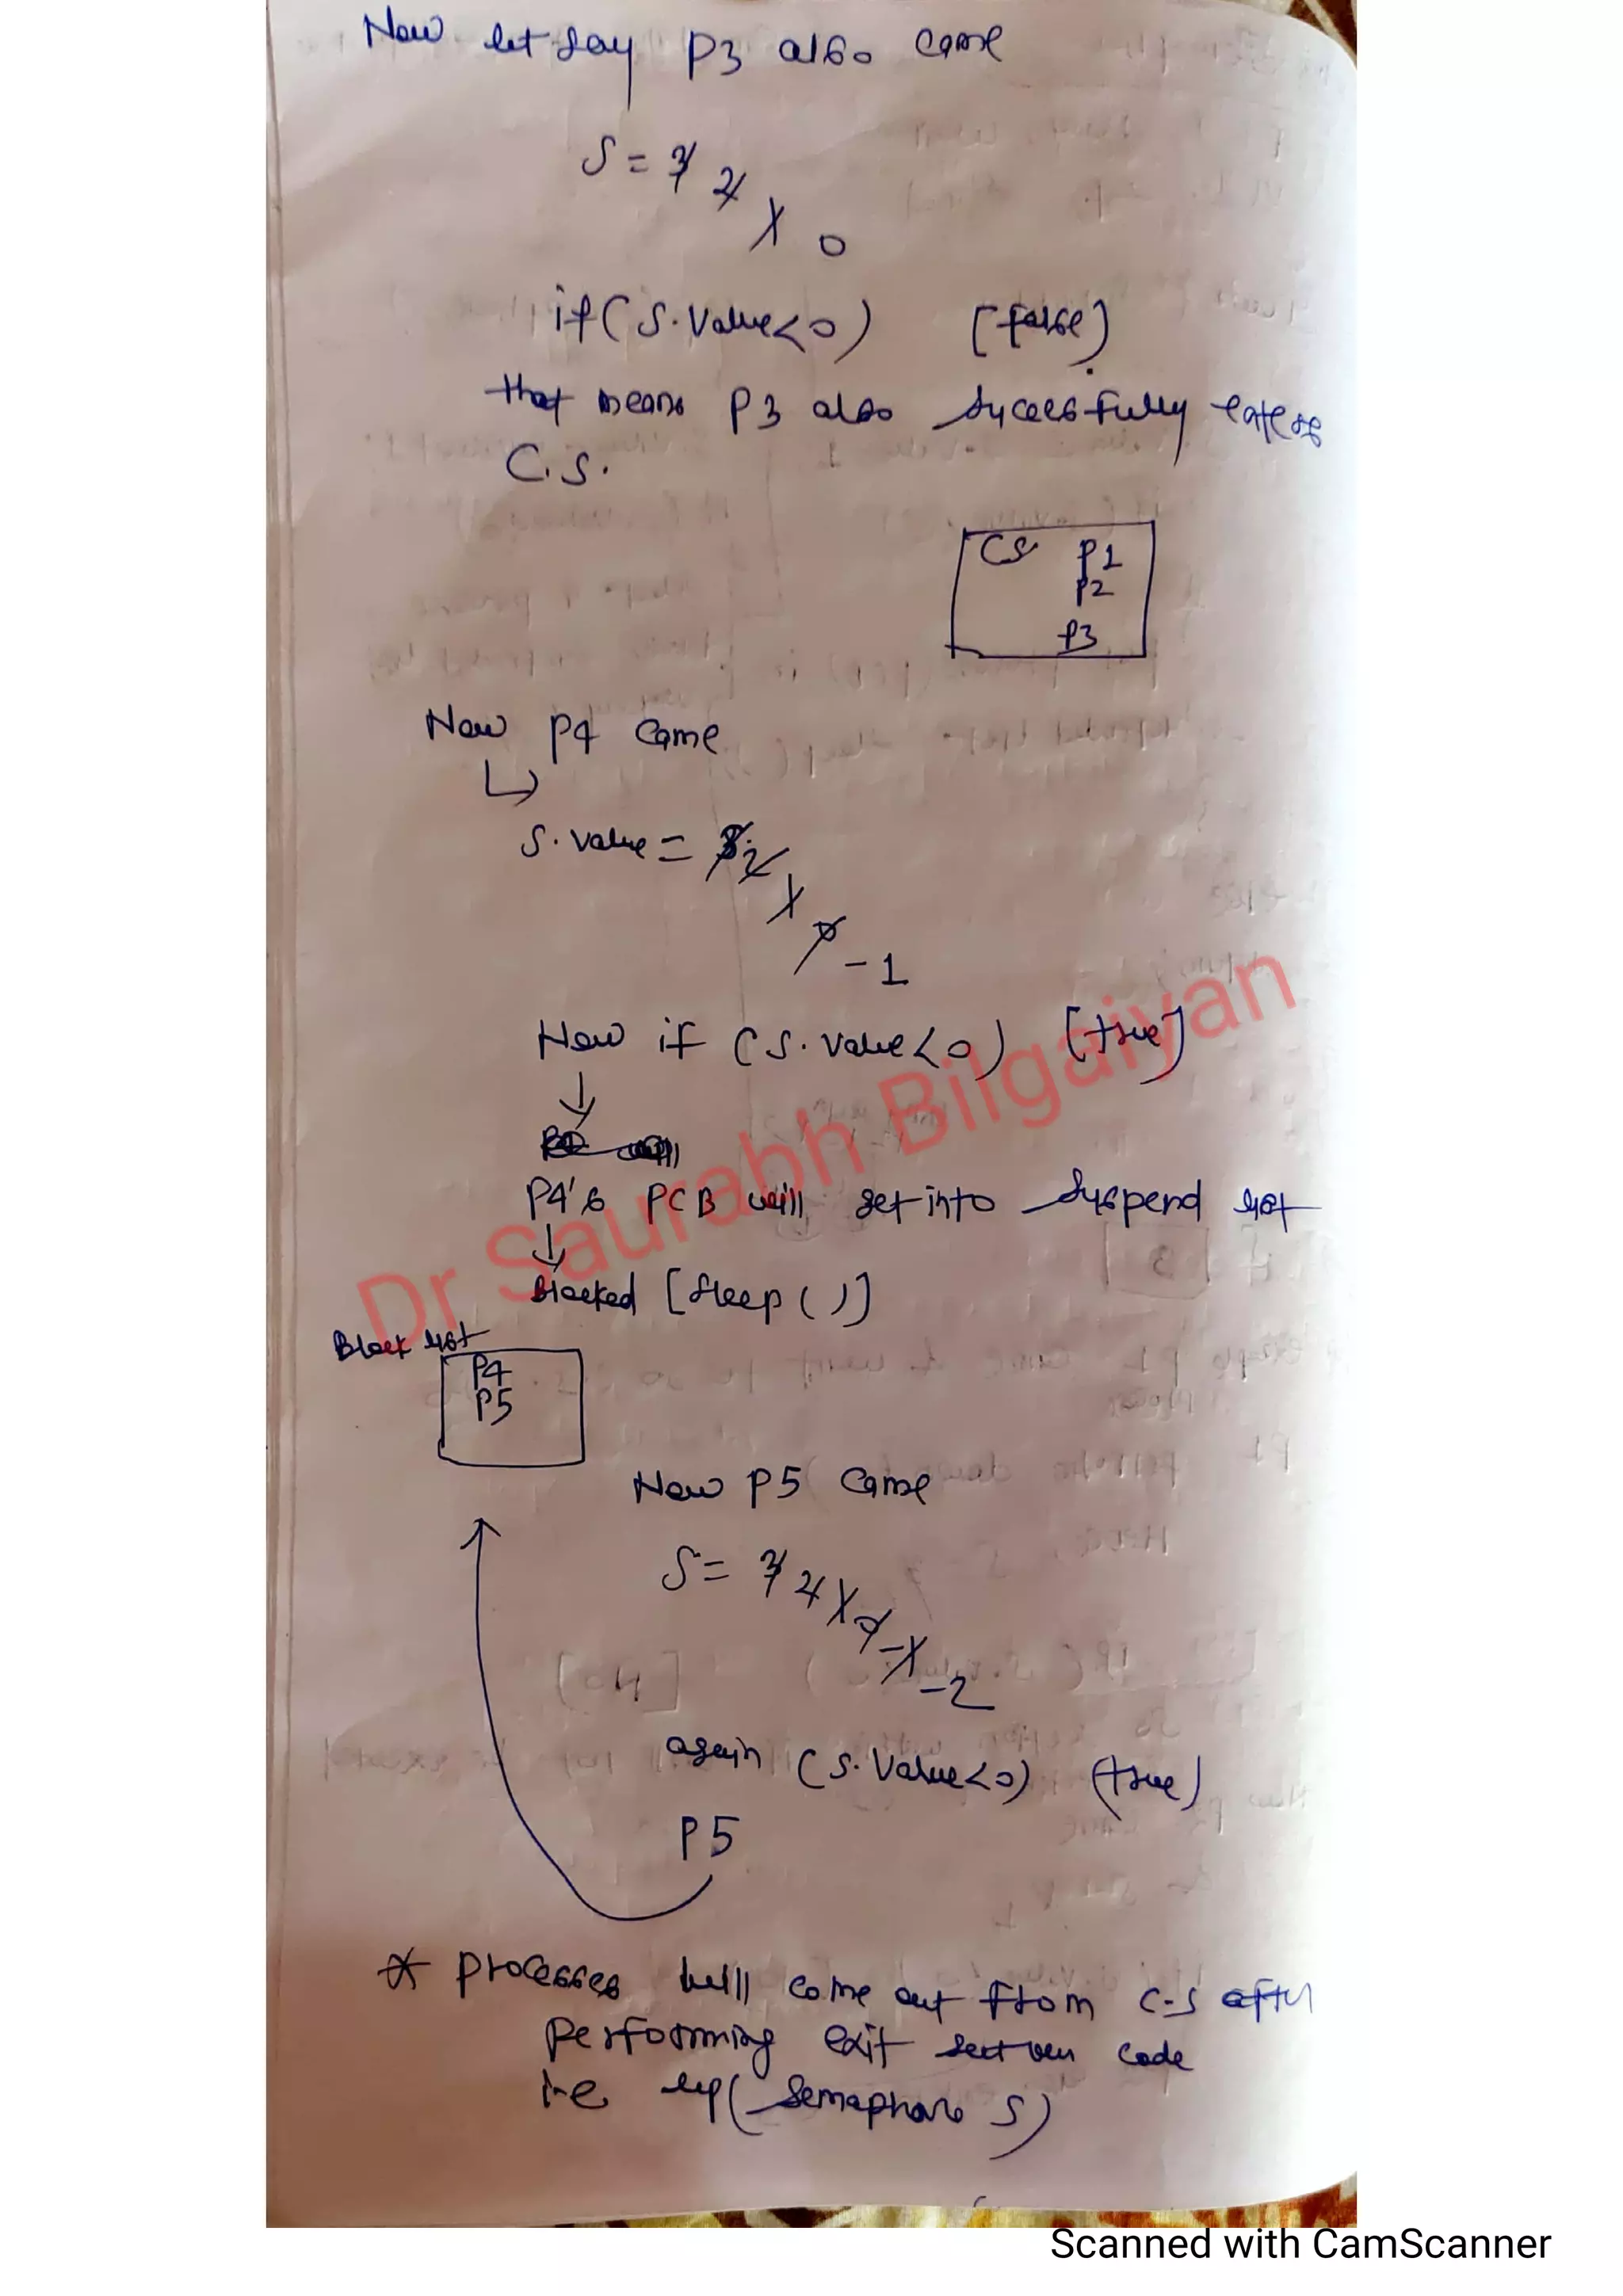 Now let say P3 also came
S = 3 2 1 0
if (S.Value<0) [false]
that means P3 also sucessfully enters
C.S.
CS P1
P2
P3
Now P4 came
S.value = 3 2
1
0 -1
Now if (S.value<0) [true]
P4's PCB will get into suspend list
Blocked [sleep()]
Block list
P4
P5
Now P5 came
S = 3 2 1 0 -1 -2
again (S.Value<0) (true)
P5
* Processes will come out from C-S after
performing exit section code
i.e. up(Semaphore S)
Dr Saurabh Bilgaiyan
Scanned with CamScanner